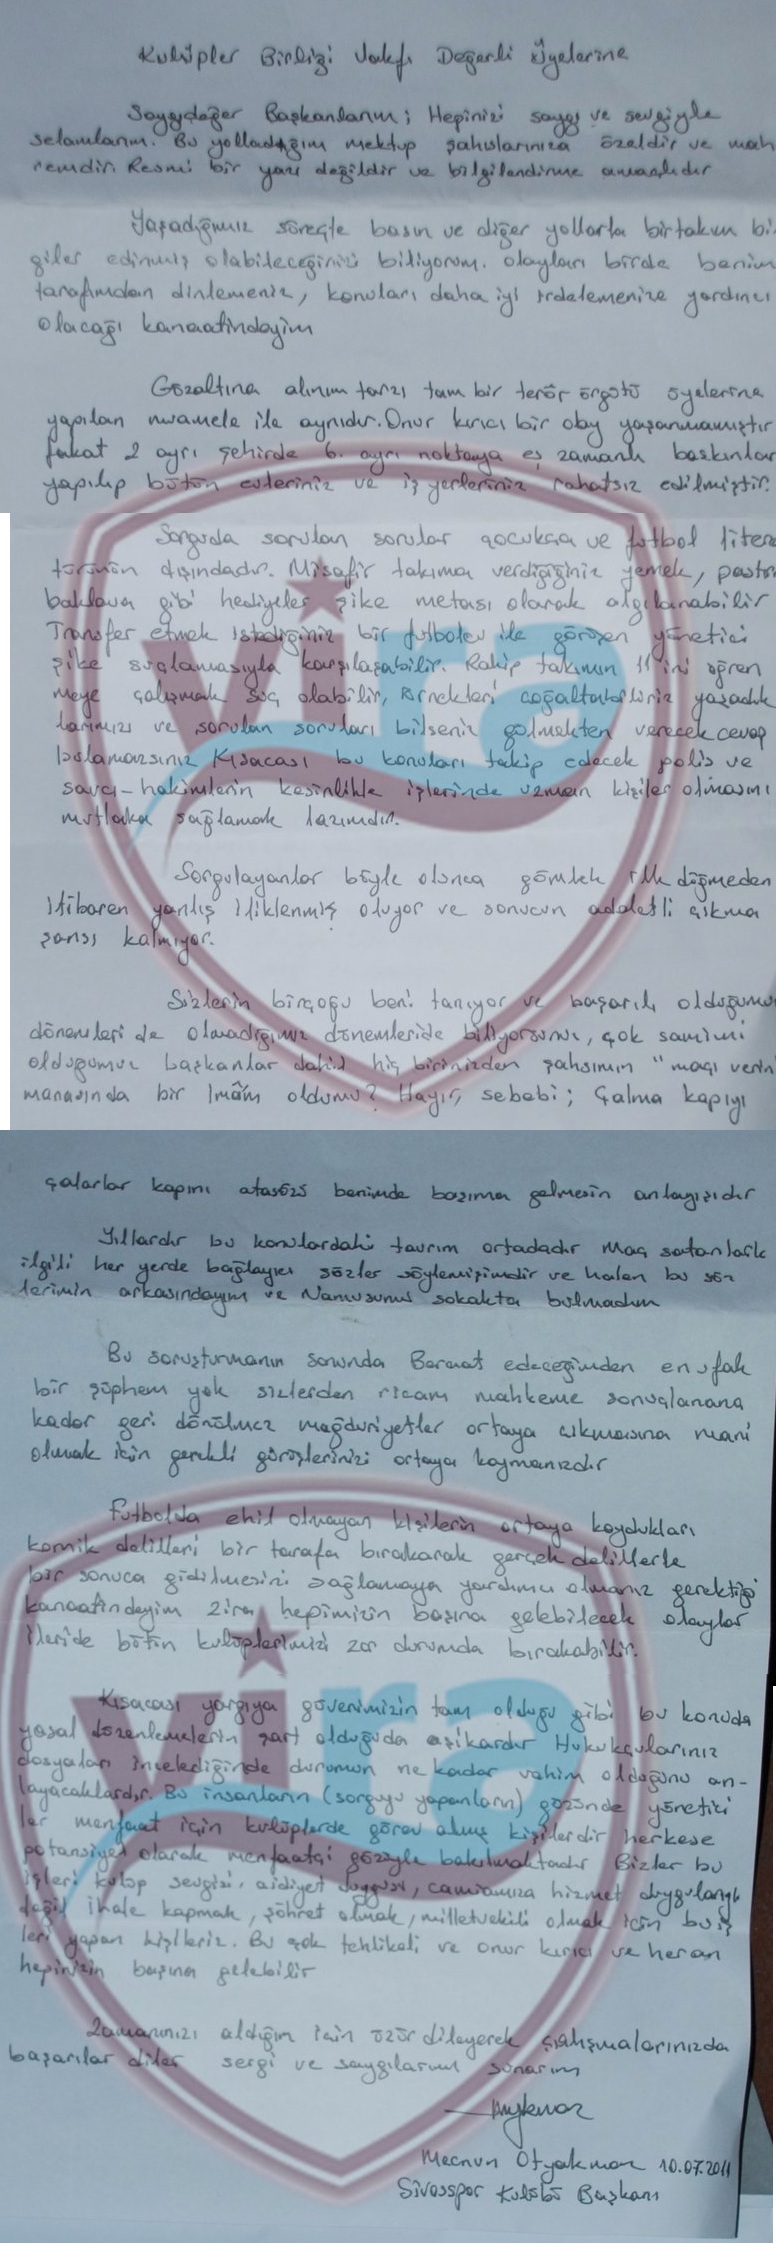 Kulüpler Birliği Vakfı Değerli Üyelerine
Saygıdeğer Başkanlarım; Hepinizi saygı ve sevgiyle
selamlarım. Bu yolladığım mektup şahıslarınıza özeldir ve mah
remdir. Resmi bir yazı değildir ve bilgilendirme amaçlıdır
Yaşadığımız süreçte basın ve diğer yollarla birtakım bi
giler edinmiş olabileceğinizi biliyorum. Olayları birde benim
tarafımdan dinlemeniz, konuları daha iyi irdelemenize yardımcı
olacağı kanaatindeyim
Gözaltına alınım tarzı tam bir terör örgütü üyelerine
yapılan muamele ile aynıdır. Onur kırıcı bir olay yaşanmamıştır
fakat 2 ayrı şehirde 6. ayrı noktaya eş zamanlı baskınlar
yapılıp bütün evleriniz ve iş yerleriniz rahatsız edilmiştir.
Sorguda sorulan sorular çocukça ve futbol litera
türünün dışındadır. Misafir takıma verdiğiniz yemek, pasta
baklava gibi hediyeler şike metası olarak algılanabilir
Transfer etmek istediğiniz bir futbolcu ile görüşen yönetici
şike suçlamasıyla karşılaşabilir. Rakip takımın 11'ini öğren
meye çalışmak suç olabilir, örnekleri çoğaltabiliriz yaşadık
larımızı ve sorulan soruları bilseniz gülmekten verecek cevap
bulamazsınız Kısacası bu konuları takip edecek polis ve
savcı-hakimlerin kesinlikle işlerinde uzman kişiler olmasını
mutlaka sağlamak lazımdır.
Sorgulayanlar böyle olunca gömlek ilk düğmeden
itibaren yanlış iliklenmiş oluyor ve sonucun adaletli çıkma
şansı kalmıyor.
Sizlerin birçoğu beni tanıyor ve başarılı olduğumuz
dönemleri de olmadığımız dönemleride biliyorsunuz, çok samimi
olduğumuz başkanlar dahil hiç birinizden şahsımın "maçı verin"
manasında bir imâm oldumu? Hayır, sebebi; Çalma kapıyı
çalarlar kapını atasözü benimde başıma gelmesin anlayışıdır
Yıllardır bu konulardaki tavrım ortadadır Maç satanlarla
ilgili her yerde bağlayıcı sözler söylemişimdir ve halen bu söz
lerimin arkasındayım ve Namusumu sokakta bulmadım
Bu soruşturmanın sonunda Beraat edeceğimden en ufak
bir şüphem yok sizlerden ricam mahkeme sonuçlanana
kadar geri dönülmez mağduriyetler ortaya çıkmasına mani
olmak için gerekli görüşlerinizi ortaya koymanızdır
Futbolda ehil olmayan kişilerin ortaya koydukları
komik delilleri bir tarafa bırakarak gerçek delillerle
bir sonuca gidilmesini sağlamaya yardımcı olmanız gerektiği
kanaatindeyim Zira hepimizin başına gelebilecek olaylar
ileride bütün kulüplerimizi zor durumda bırakabilir.
Kısacası yargıya güvenimizin tam olduğu gibi bu konuda
yasal düzenlemelerin şart olduğuda aşikardır Hukukçularınız
dosyaları incelediğinde durumun ne kadar vahim olduğunu an-
layacaklardır. Bu insanların (sorguyu yapanların) gözünde yönetici
ler menfaat için kulüplerde görev almış kişilerdir herkese
potansiyel olarak menfaatçi gözüyle bakılmaktadır Bizler bu
işleri kulüp sevgisi, aidiyet duygusu, camiamıza hizmet duygularıyla
değil ihale kapmak, şöhret olmak, milletvekili olmak için bu iş
leri yapan kişileriz. Bu çok tehlikeli ve onur kırıcı ve heran
hepinizin başına gelebilir
Zamanınızı aldığım için özür dileyerek çalışmalarınızda
başarılar diler sevgi ve saygılarımı sunarım
Mecnun Otyakmaz 10.07.2011
Sivasspor Kulübü Başkanı
vira
vira